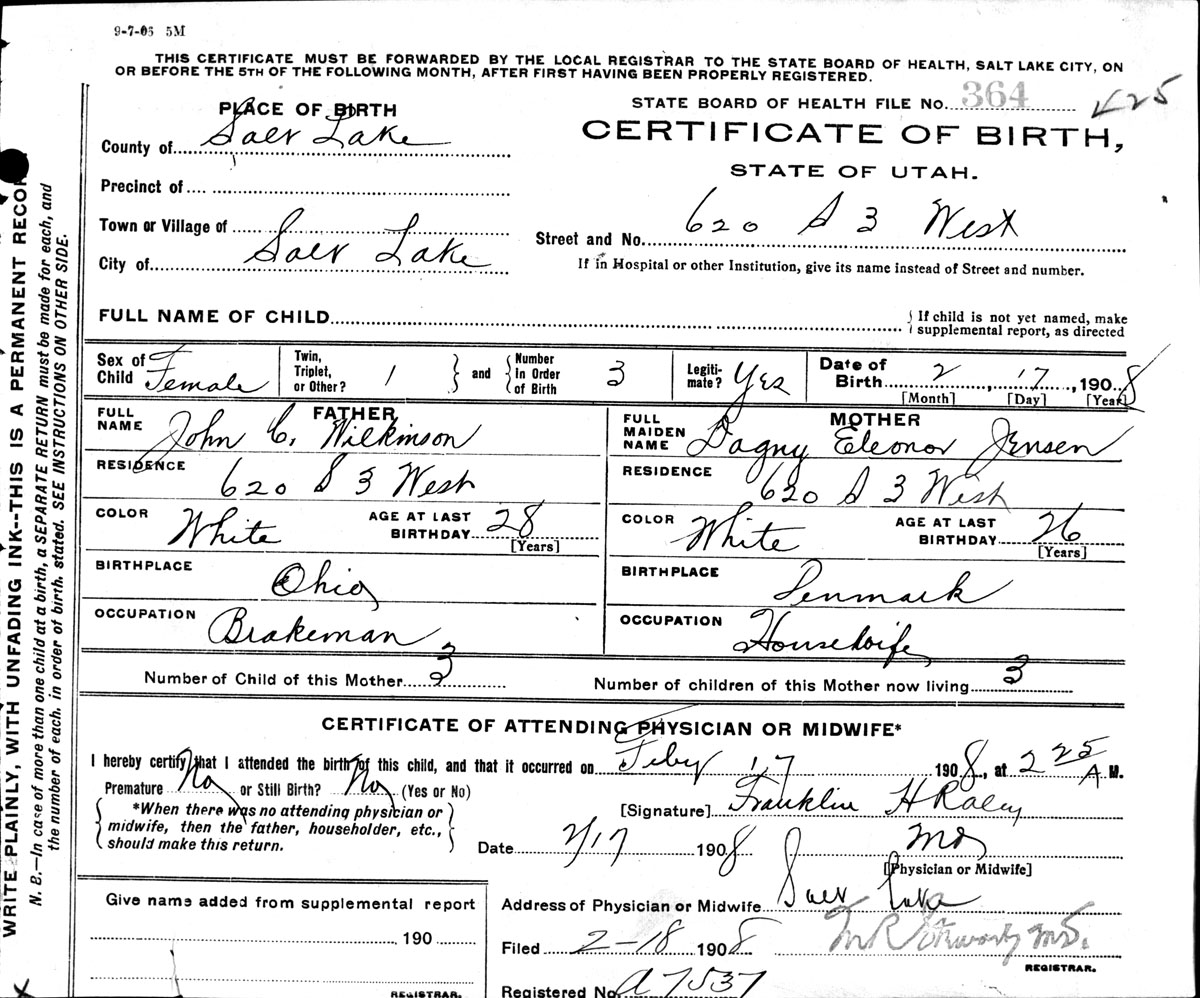 9-7-06 5M
THIS CERTIFICATE MUST BE FORWARDED BY THE LOCAL REGISTRAR TO THE STATE BOARD OF HEALTH, SALT LAKE CITY, ON
OR BEFORE THE 5TH OF THE FOLLOWING MONTH, AFTER FIRST HAVING BEEN PROPERLY REGISTERED.
STATE BOARD OF HEALTH FILE No. 364
425
CERTIFICATE OF BIRTH,
STATE OF UTAH.
PLACE OF BIRTH
County of Salt Lake
Precinct of
Town or Village of
City of Salt Lake
Street and No. 620 S 3 West
If in Hospital or other Institution, give its name instead of Street and number.
FULL NAME OF CHILD
If child is not yet named, make
supplemental report, as directed
Sex of Child Female
Twin, Triplet, or Other? 1
and
Number In Order of Birth 3
Legiti-mate? Yes
Date of Birth 2, 17, 1908
[Month] [Day] [Year]
FATHER
FULL NAME John C. Wilkinson
RESIDENCE 620 S 3 West
COLOR White AGE AT LAST BIRTHDAY 28
[Years]
BIRTHPLACE Ohio
OCCUPATION Brakeman
MOTHER
FULL MAIDEN NAME Dagny Eleonor Jensen
RESIDENCE 620 S 3 West
COLOR White AGE AT LAST BIRTHDAY 26
[Years]
BIRTHPLACE Denmark
OCCUPATION Housewife
Number of Child of this Mother 3
Number of children of this Mother now living 3
CERTIFICATE OF ATTENDING PHYSICIAN OR MIDWIFE*
I hereby certify that I attended the birth of this child, and that it occurred on Feby 17 1908, at 2 25 A M.
Premature No or Still Birth? No (Yes or No)
*When there was no attending physician or
midwife, then the father, householder, etc.,
should make this return.
[Signature] Franklin H Raley
MD
[Physician or Midwife]
Date 2/17 1908
Address of Physician or Midwife Salt Lake
Give name added from supplemental report
190
REGISTRAR.
Filed 2-18 1908
MD.
REGISTRAR.
Registered No. A 7537
WRITE PLAINLY, WITH UNFADING INK--THIS IS A PERMANENT RECORD
N. B.—In case of more than one child at a birth, a SEPARATE RETURN must be made for each, and
the number of each, in order of birth, stated. SEE INSTRUCTIONS ON OTHER SIDE.